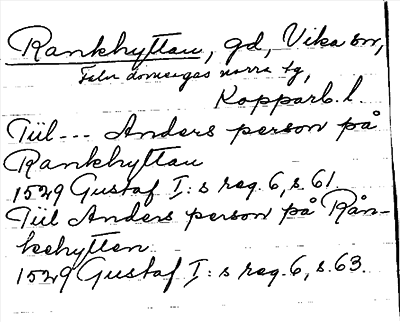 Rankhyttan, gd, Vika sn,
Falu domsagas norra tg,
Kopparb. l.
Till --- Anders person på
Rankhyttan
1529 Gustaf I:s reg. 6, s. 61
Till Anders person på Rån-
kehytten
1529 Gustaf I:s reg. 6, s. 63.